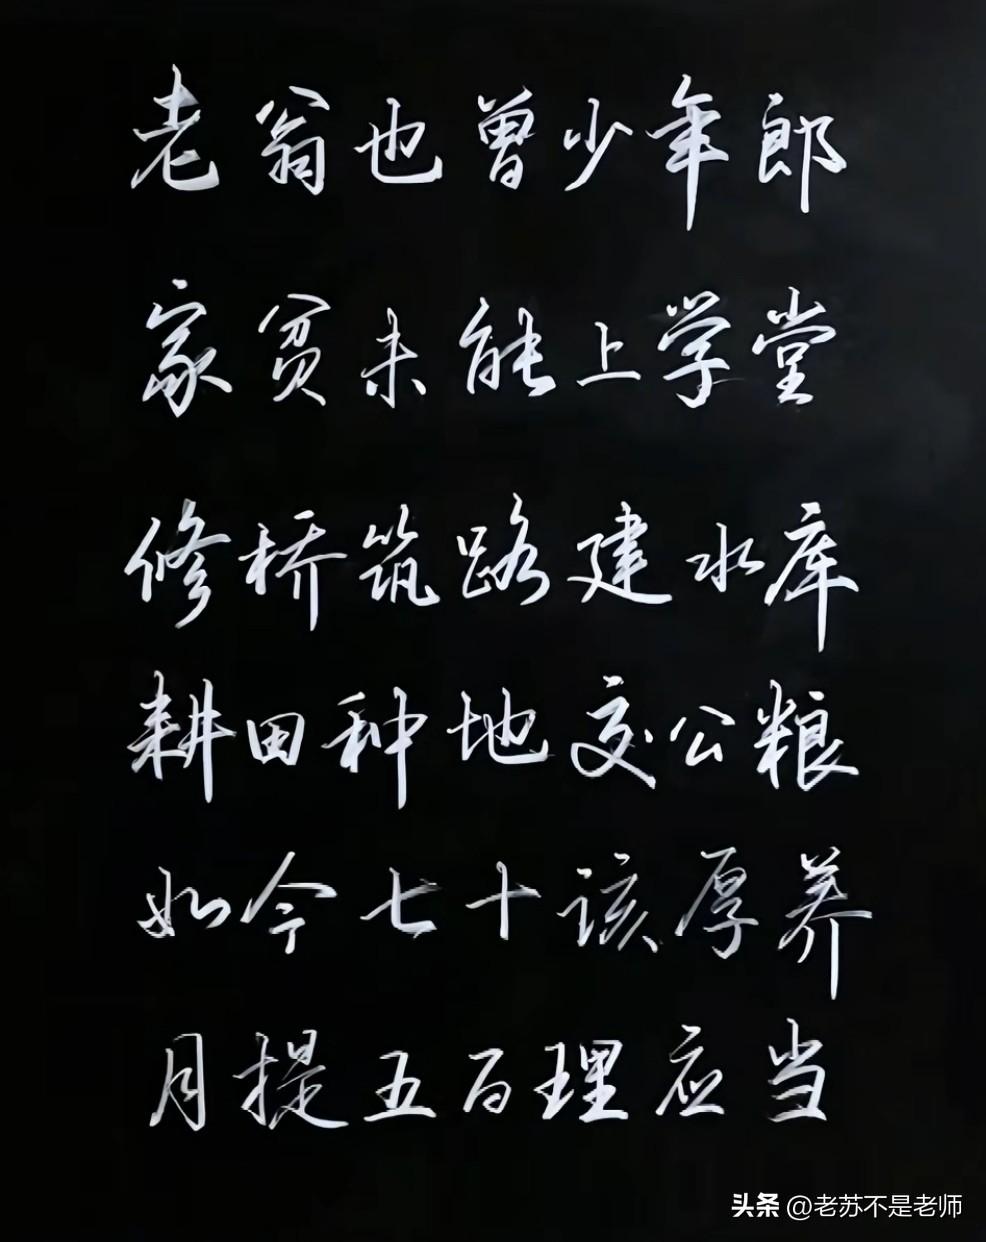 老翁也曾少年郎
家贫未能上学堂
修桥筑路建水库
耕田种地交公粮
如今七十该厚养
月提五百理应当
头条 @老苏不是老师